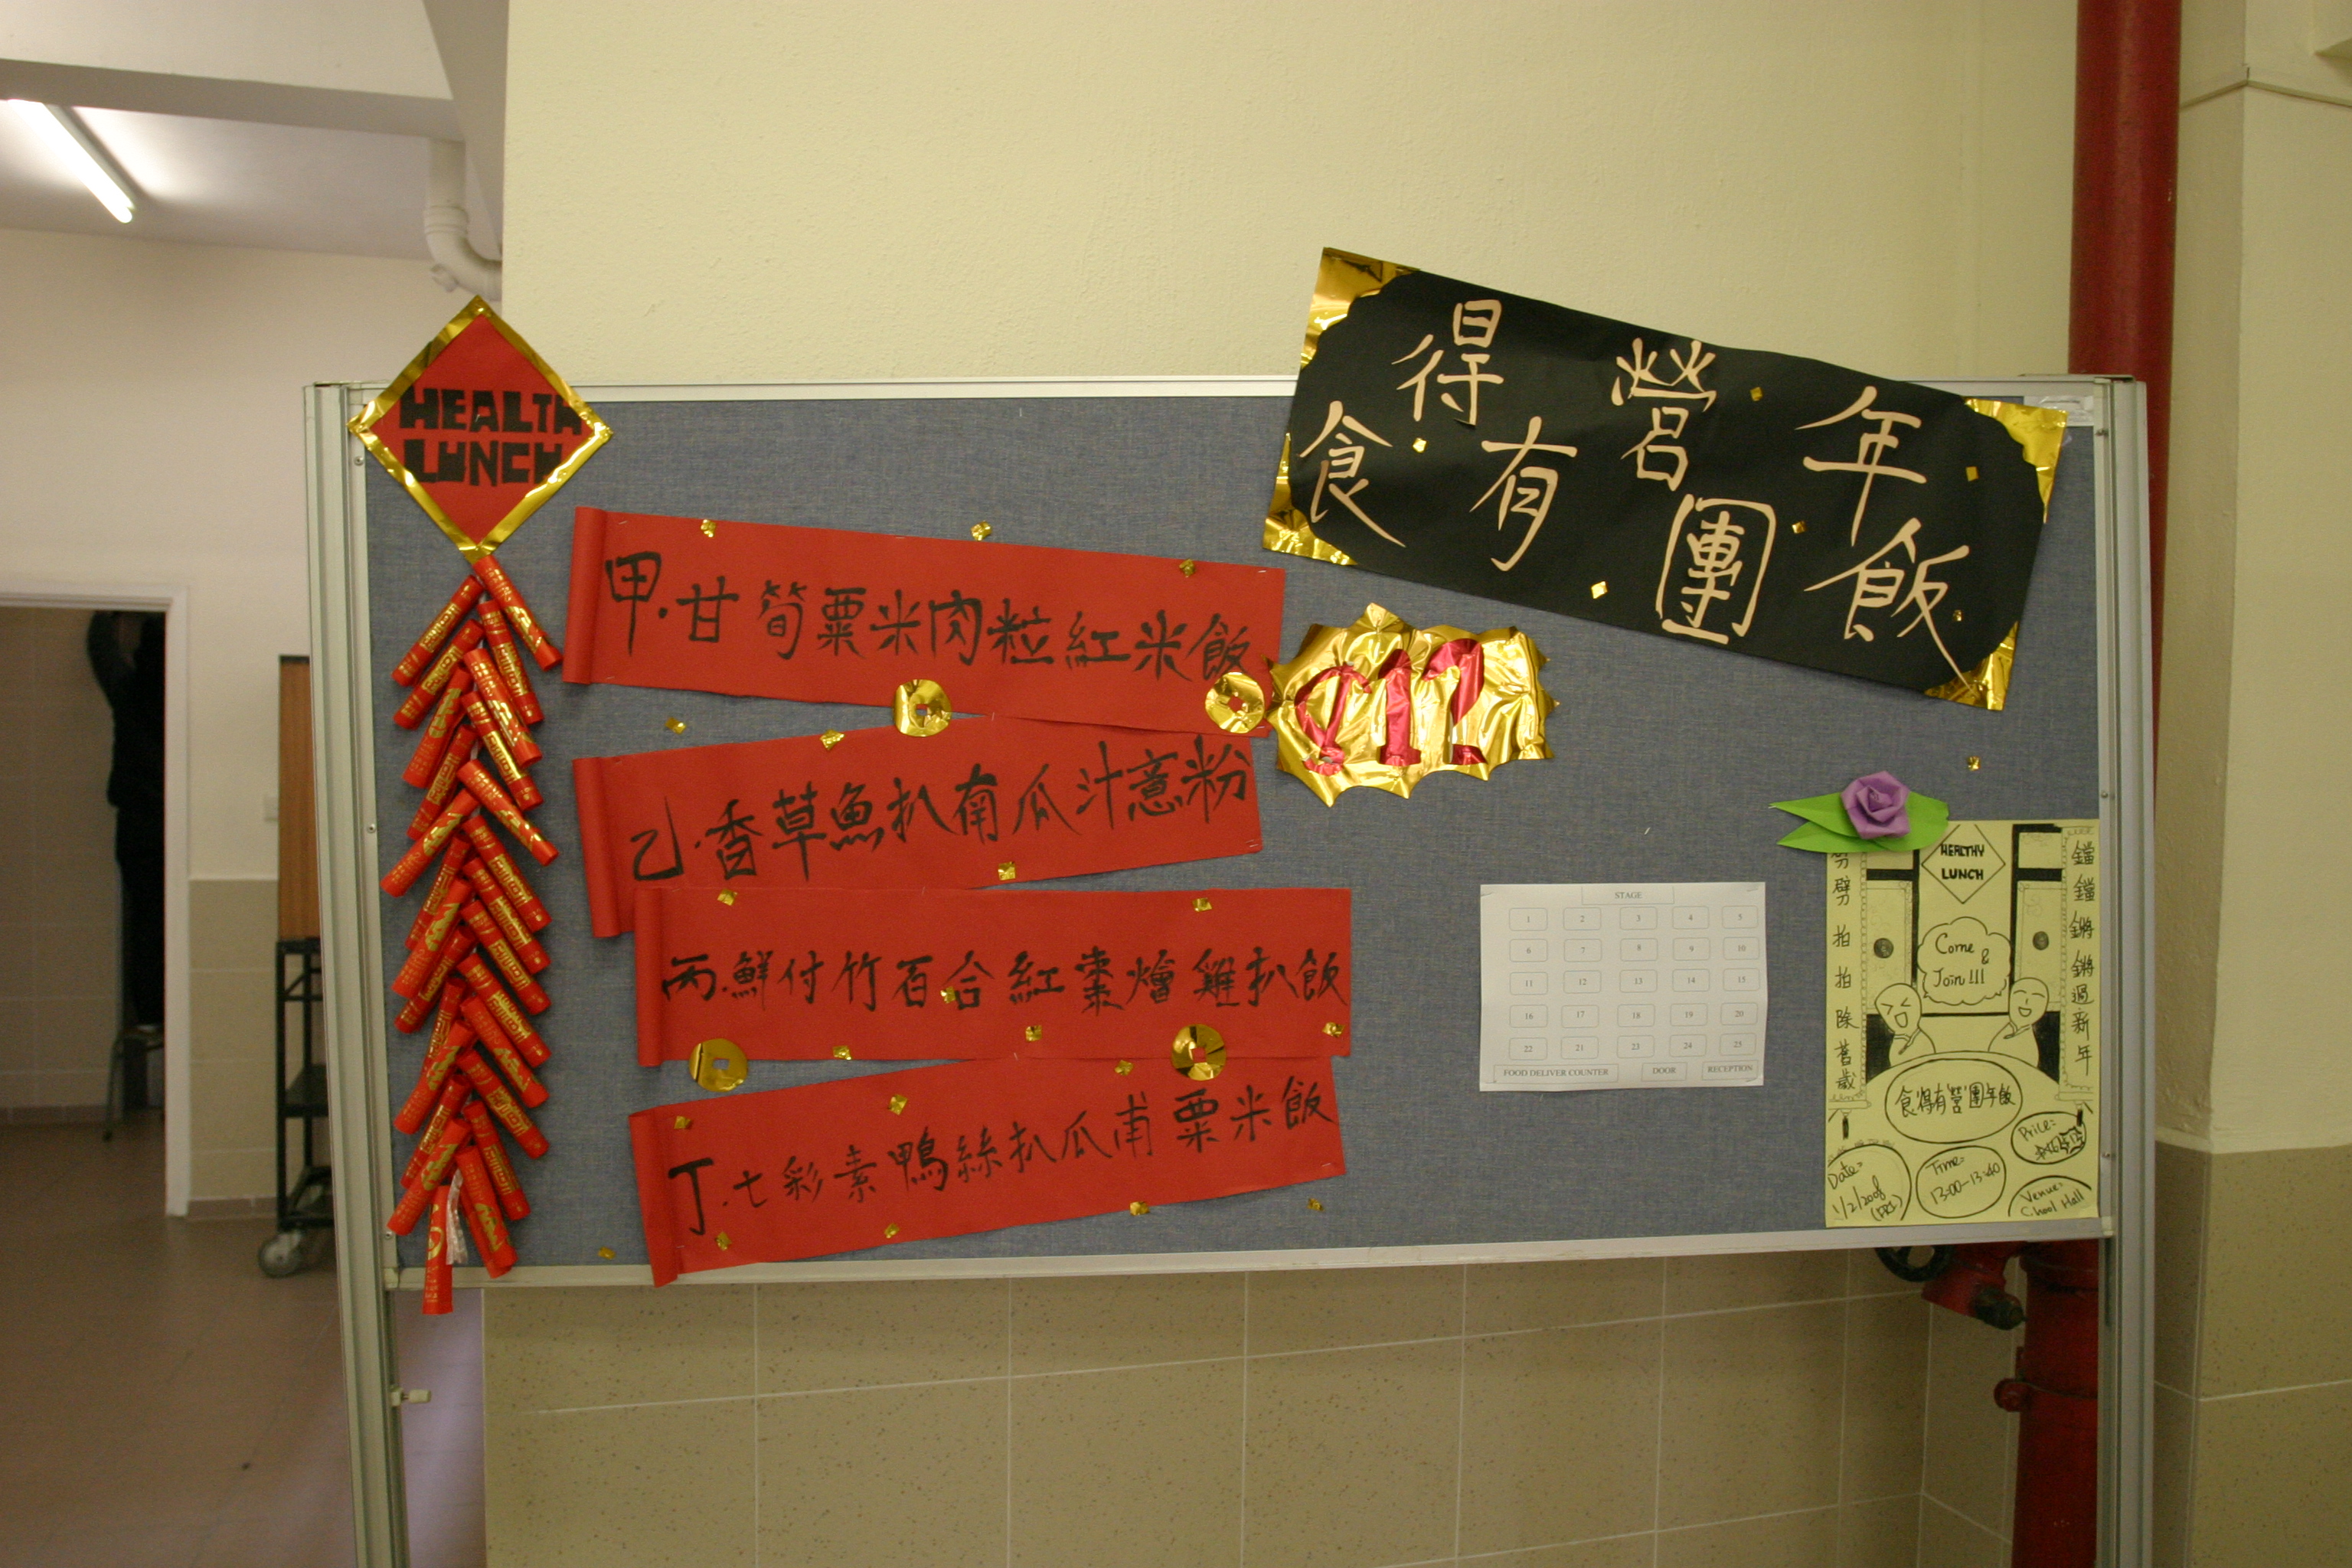 HEALTH
LUNCH
食得有營團年飯
甲.甘筍粟米肉粒紅米飯
乙.香草魚扒南瓜汁意粉
丙.鮮付竹百合紅棗燴雞扒飯
丁.七彩素鴨絲扒瓜甫粟米飯
STAGE
1 2 3 4 5
6 7 8 9 10
11 12 13 14 15
16 17 18 19 20
22 21 23 24 25
FOOD DELIVER COUNTER DOOR RECEPTION
HEALTHY
LUNCH
劈拍拍除舊歲
鑼鑼鏘鏘過新年
Come &
Join!!!
食得有營團年飯
Price:
Date:
1/2/2008
(FRI)
Time:
13:00-13:40
Venue:
Hall